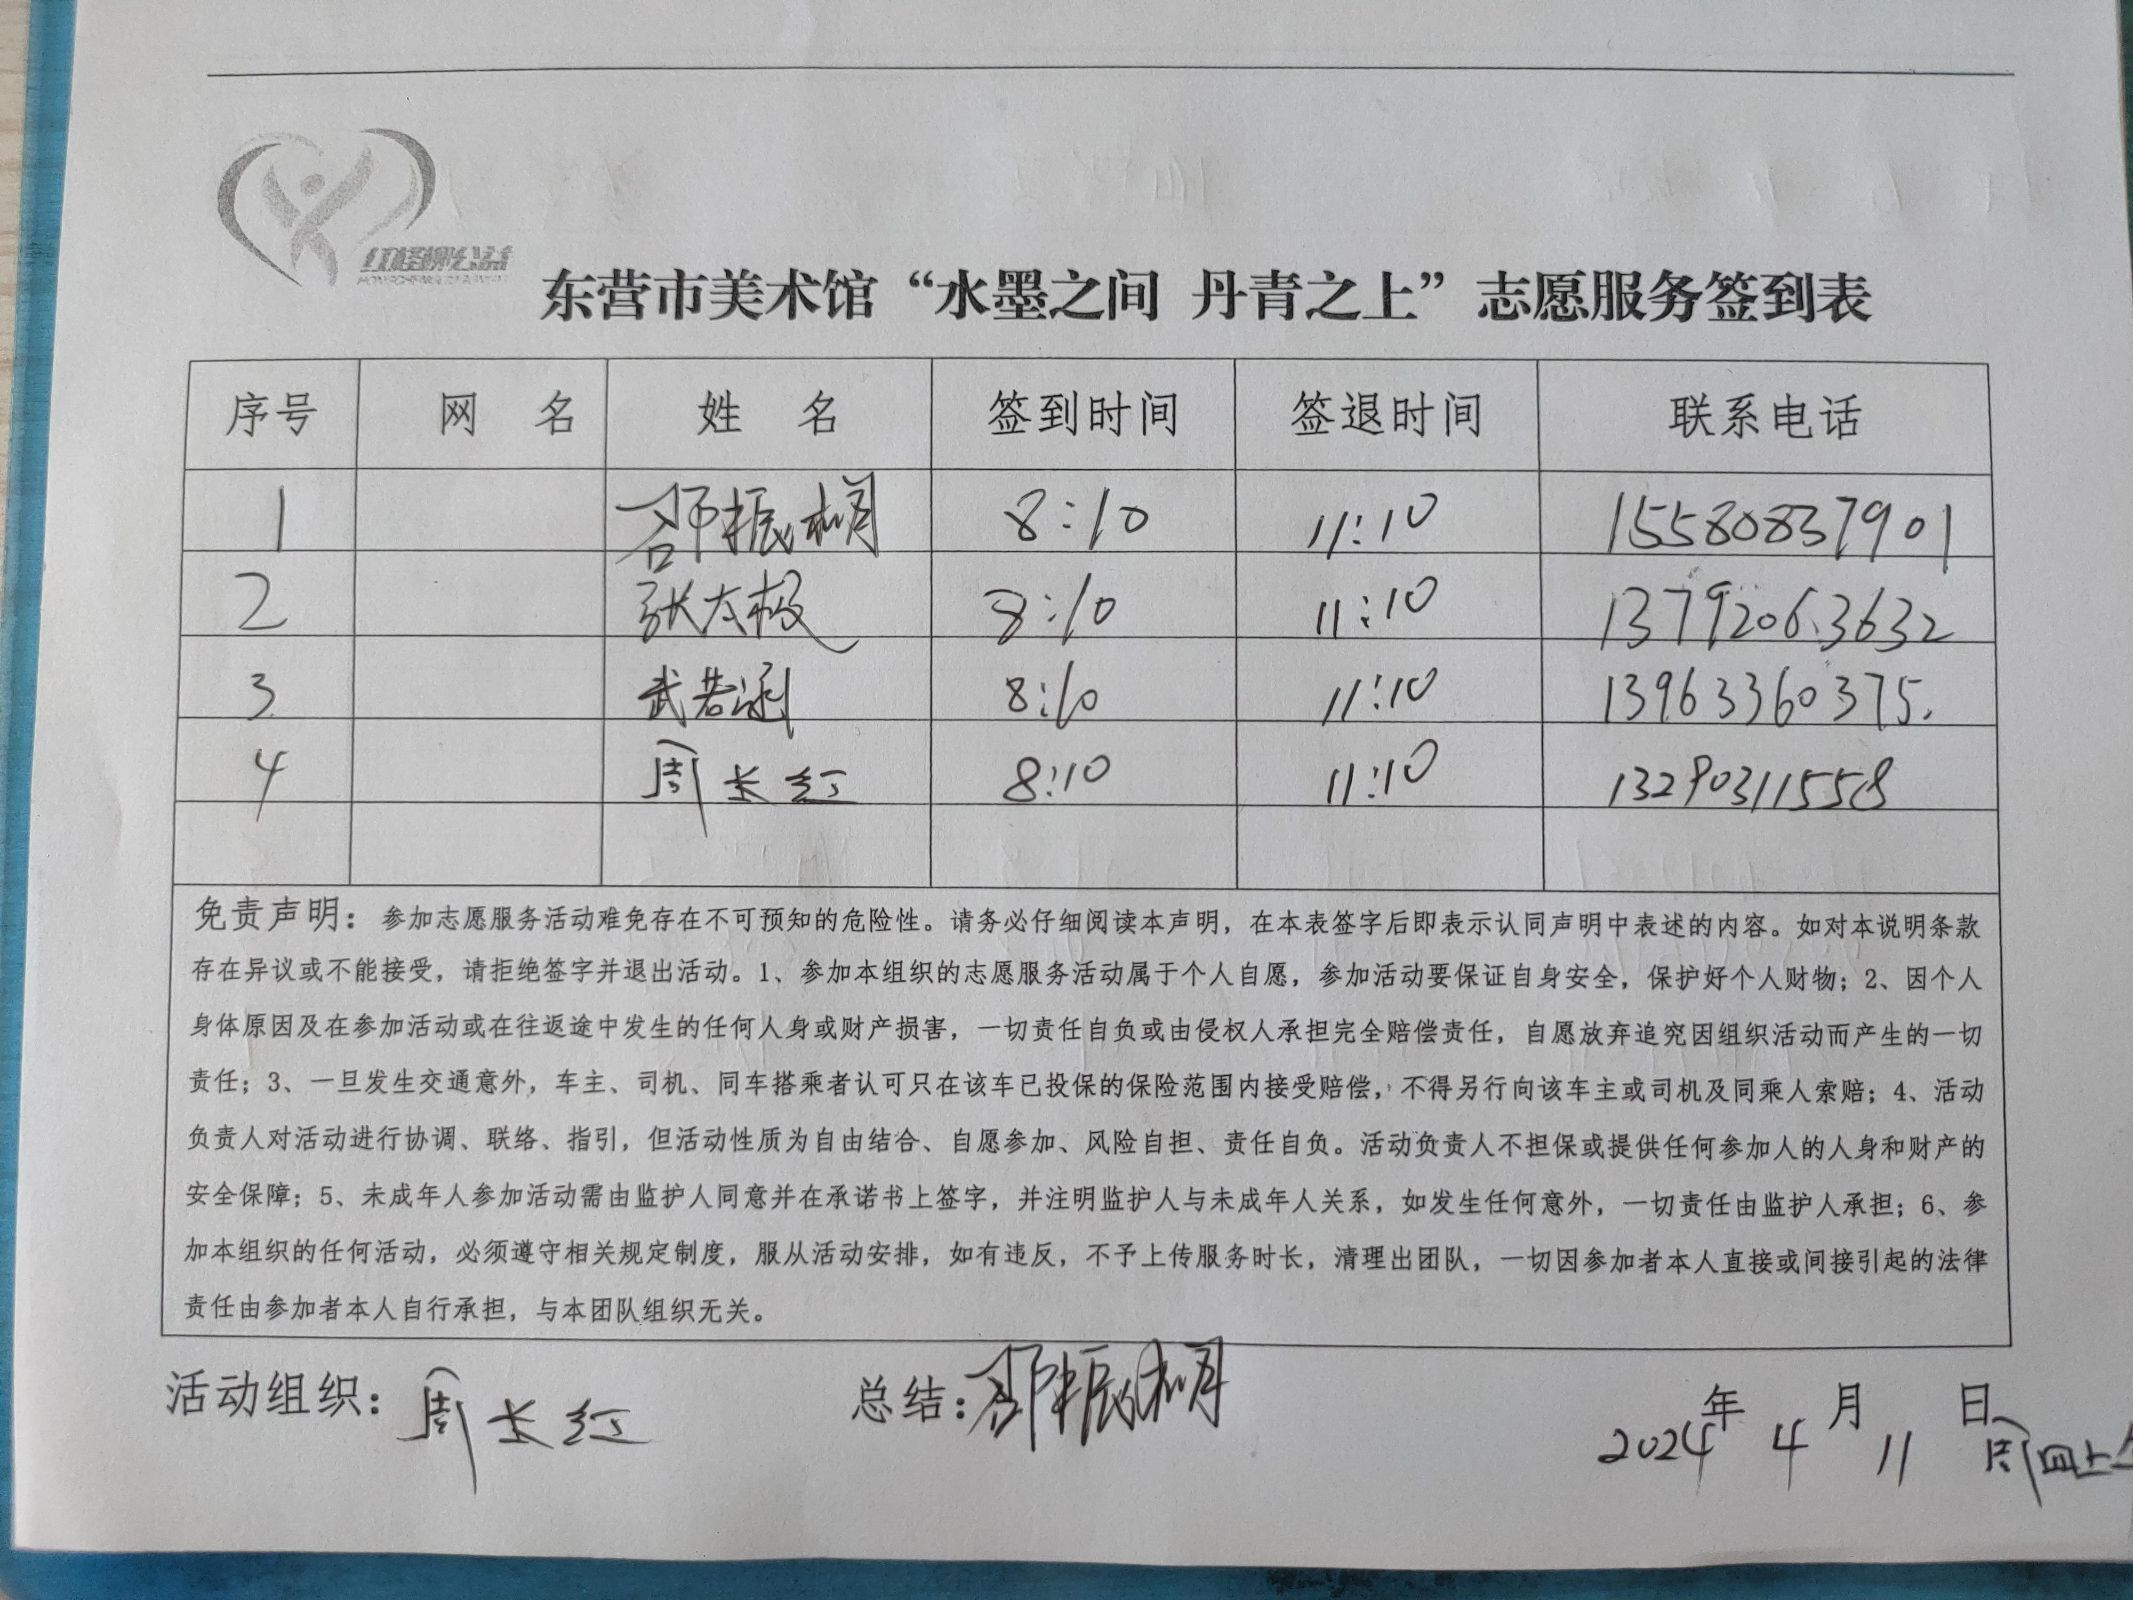 红柽柳公益
东营市美术馆“水墨之间 丹青之上”志愿服务签到表
序号 网 名 姓 名 签到时间 签退时间 联系电话
1 邵振桐 8:10 11:10 15580837901
2 张太极 8:10 11:10 13792063632
3 武若涵 8:10 11:10 13963360375.
4 周长红 8:10 11:10 13290311558
免责声明：参加志愿服务活动难免存在不可预知的危险性。请务必仔细阅读本声明，在本表签字后即表示认同声明中表述的内容。如对本说明条款
存在异议或不能接受，请拒绝签字并退出活动。1、参加本组织的志愿服务活动属于个人自愿，参加活动要保证自身安全，保护好个人财物；2、因个人
身体原因及在参加活动或在往返途中发生的任何人身或财产损害，一切责任自负或由侵权人承担完全赔偿责任，自愿放弃追究因组织活动而产生的一切
责任；3、一旦发生交通意外，车主、司机、同车搭乘者认可只在该车已投保的保险范围内接受赔偿，不得另行向该车主或司机及同乘人索赔；4、活动
负责人对活动进行协调、联络、指引，但活动性质为自由结合、自愿参加、风险自担、责任自负。活动负责人不担保或提供任何参加人的人身和财产的
安全保障；5、未成年人参加活动需由监护人同意并在承诺书上签字，并注明监护人与未成年人关系，如发生任何意外，一切责任由监护人承担；6、参
加本组织的任何活动，必须遵守相关规定制度，服从活动安排，如有违反，不予上传服务时长，清理出团队，一切因参加者本人直接或间接引起的法律
责任由参加者本人自行承担，与本团队组织无关。
活动组织：周长红 总结：邵振桐 2024年 4月 11日 周四上